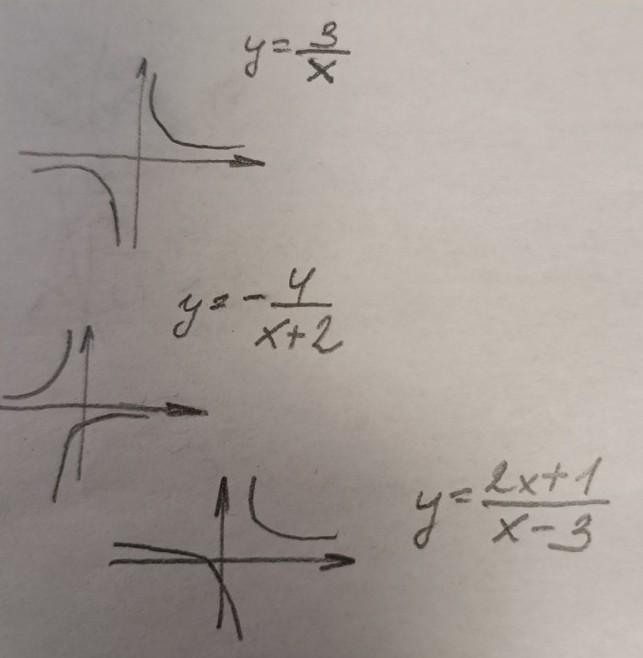 y = 3/x
y = - 4/(x+2)
y = (2x+1)/(x-3)